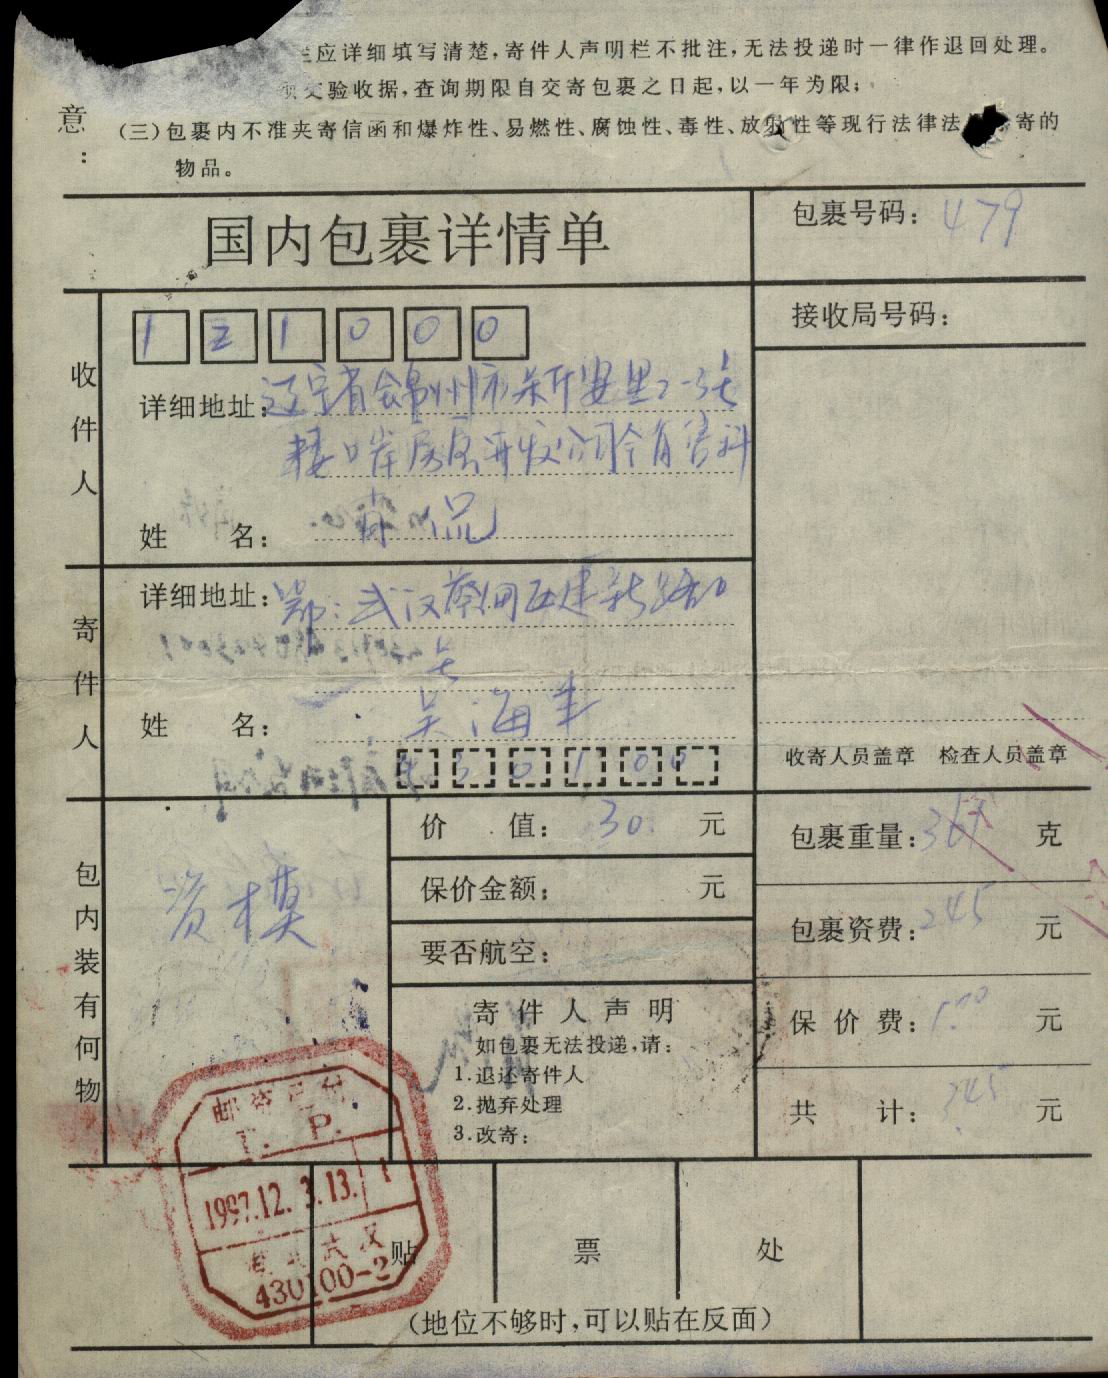 应详细填写清楚,寄件人声明栏不批注,无法投递时一律作退回处理。
交验收据,查询期限自交寄包裹之日起,以一年为限;
意:
(三)包裹内不准夹寄信函和爆炸性、易燃性、腐蚀性、毒性、放射性等现行法律法 寄的
物品。
国内包裹详情单
包裹号码: 479
接收局号码:
收件人
1 2 1 0 0 0
详细地址:辽宁省锦州市 安里
房屋开发公司
姓 名: 侃
寄件人
详细地址:鄂:武汉蔡甸 建新
姓 名: 吴海
4 3 0 1 0 0
收寄人员盖章 检查人员盖章
包内装有何物
价 值: 30 元
包裹重量: 克
保价金额: 元
包裹资费:245 元
要否航空:
寄件人声明
如包裹无法投递,请:
1.退还寄件人
2.抛弃处理
3.改寄:
保价费: 元
共 计: 245 元
邮资已付
T. P.
1997.12. 3.13. 1
湖北武汉
430100-2
贴 票 处
(地位不够时,可以贴在反面)